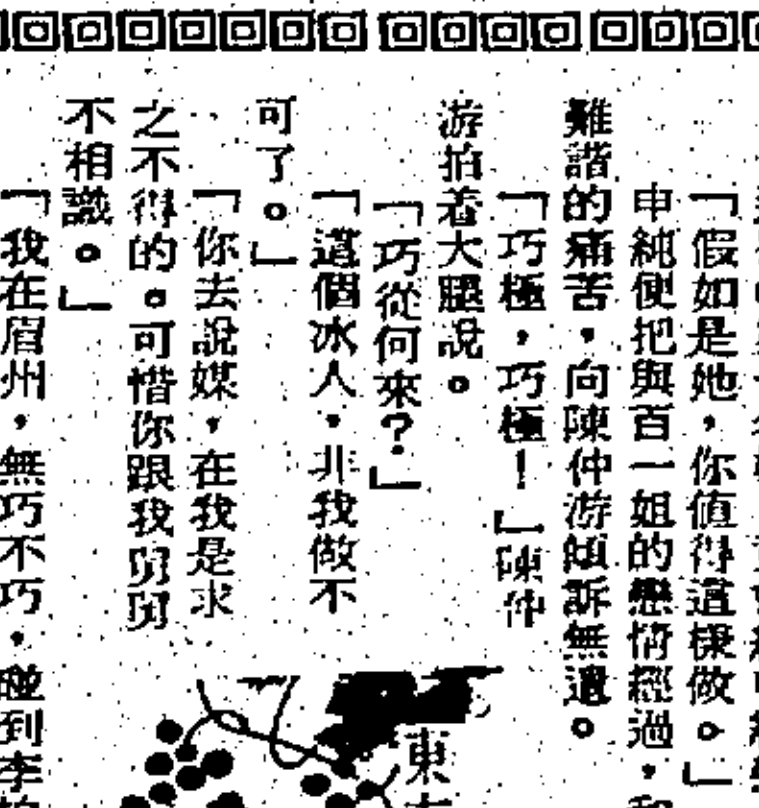 「假如是她,你值得這樣做。」
申純便把與百一姐的戀情經過,和
難諧的痛苦,向陳仲游傾訴無遺。
「巧極,巧極!」陳仲
游拍着大腿說。
「巧從何來?」
「這個冰人,非我做不
可了。」
「你去說媒,在我是求
之不得的。可惜你跟我舅舅
不相識。」
「我在眉州,無巧不巧,碰到李
東